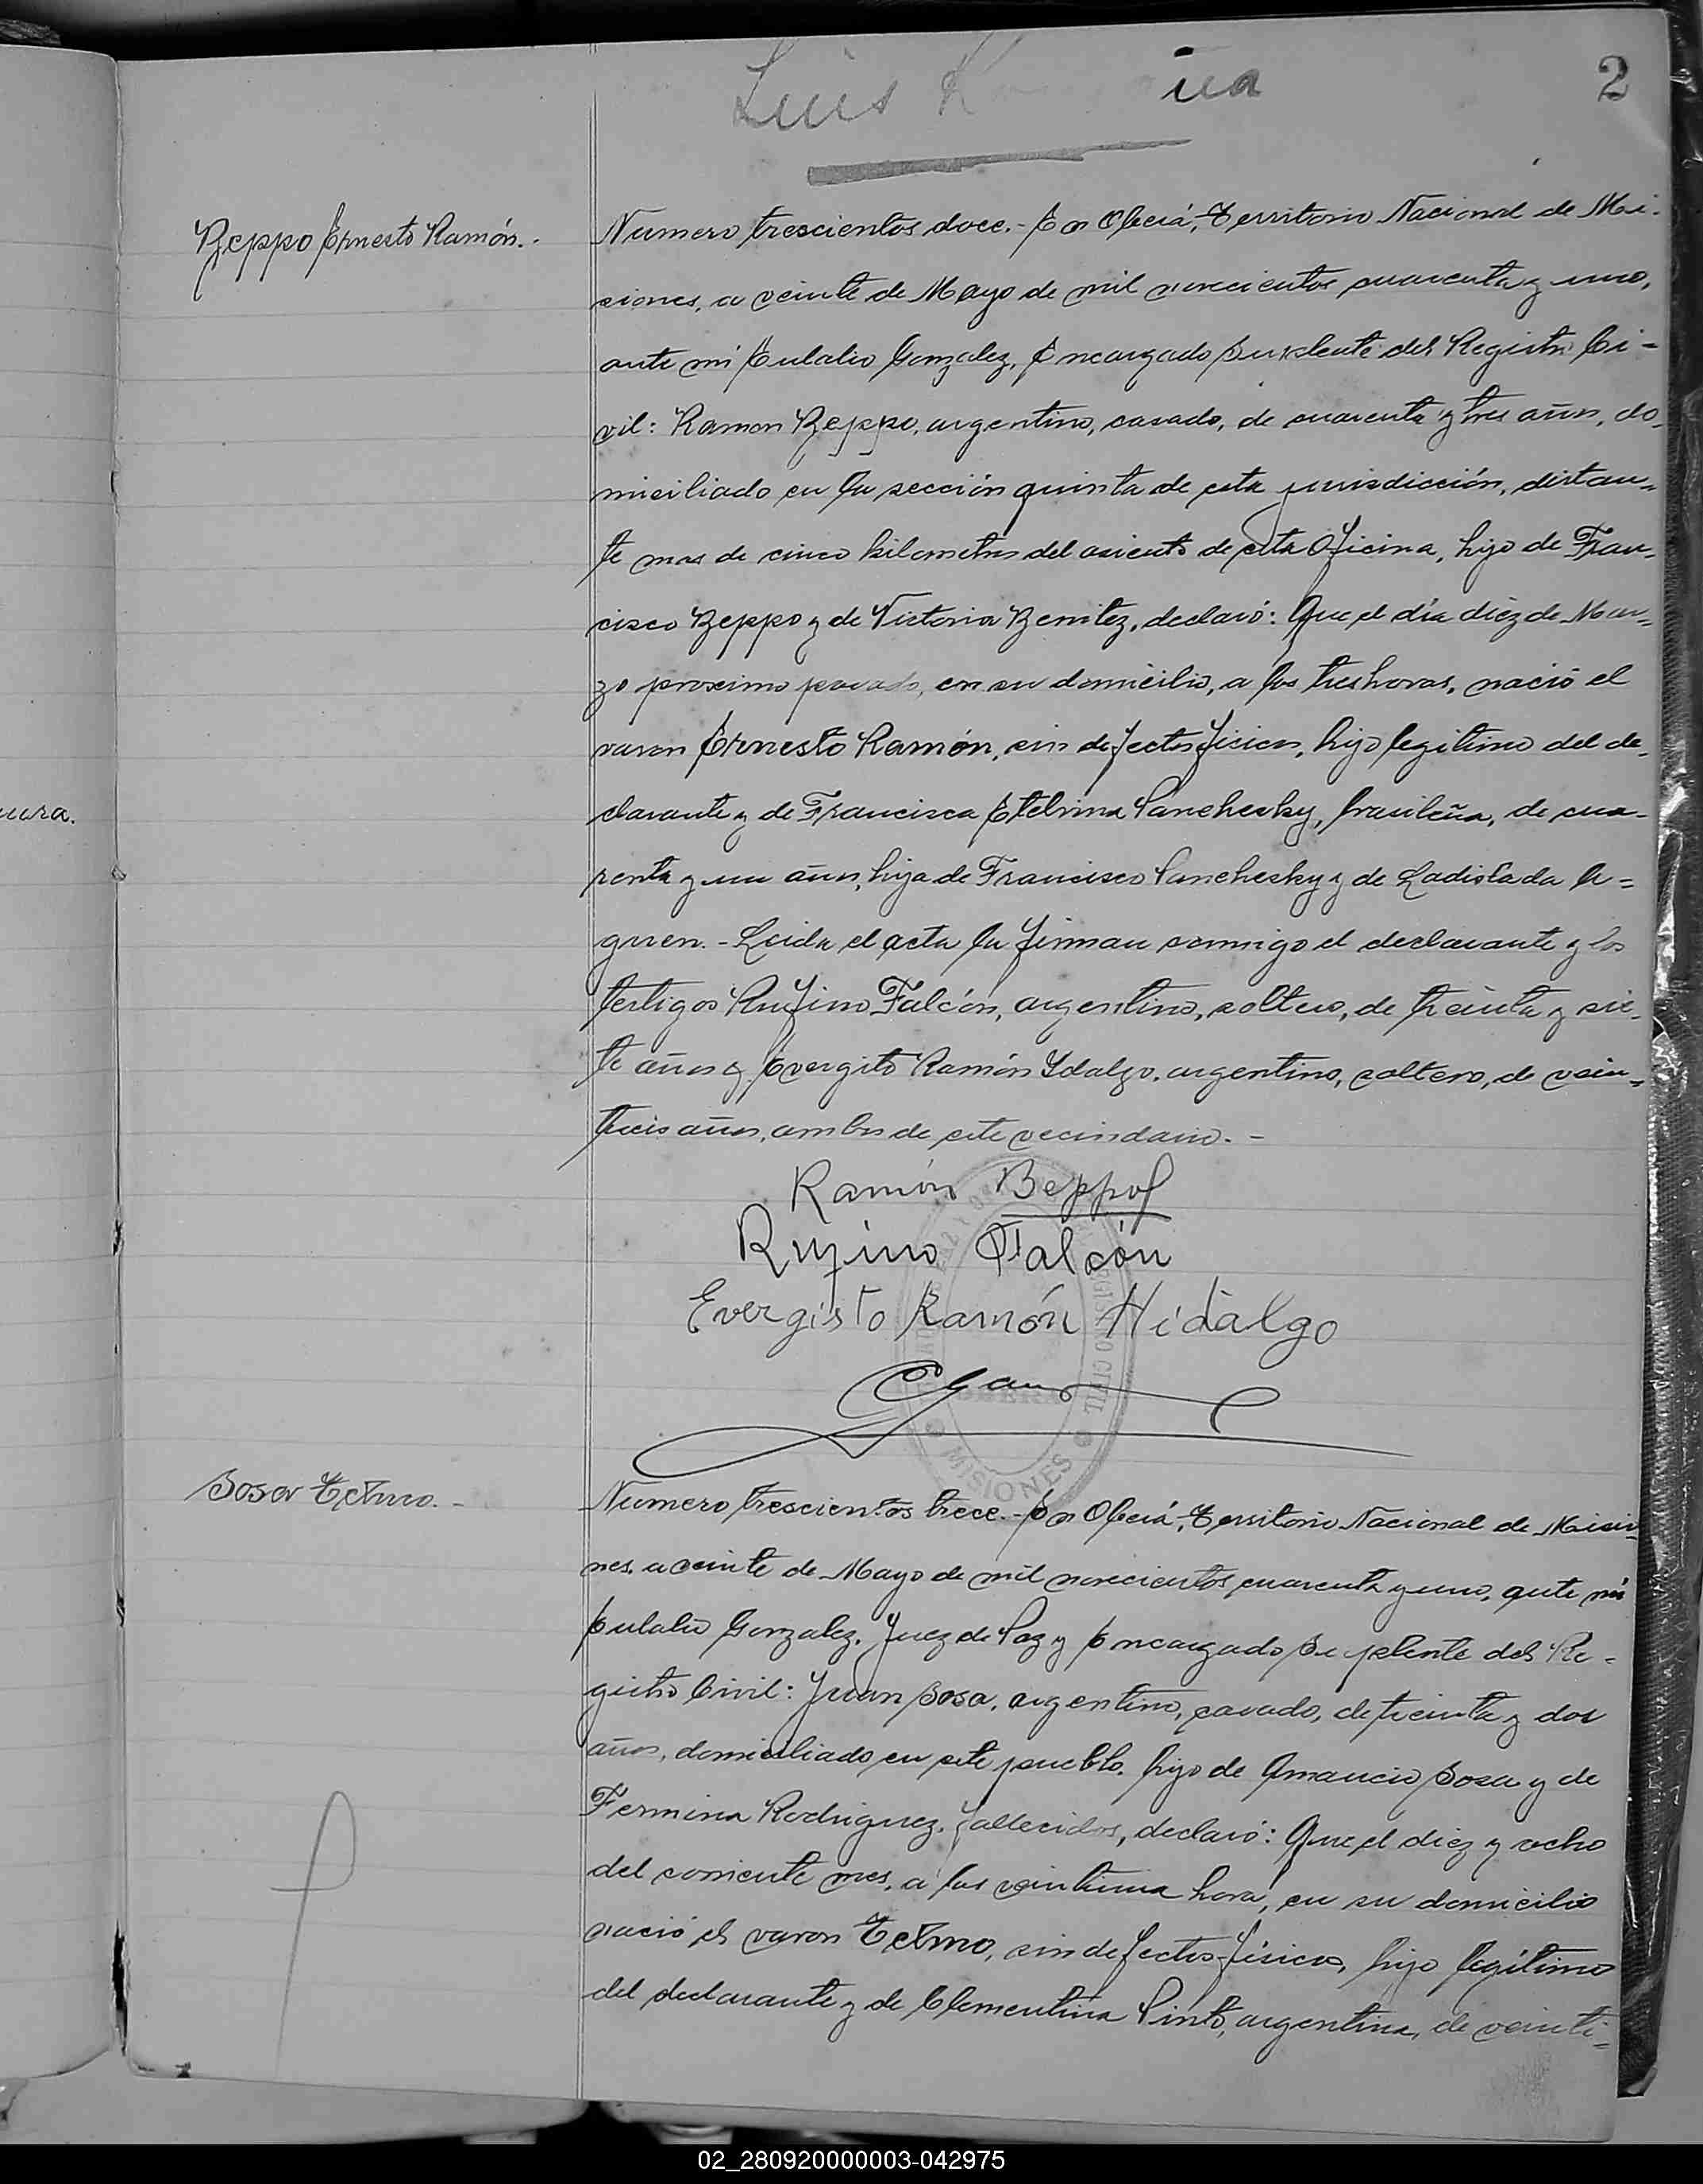 2
Luis
Beppo Ernesto Ramón.-
Numero trescientos doce.- En Oberá, Territorio Nacional de Mi-
siones, a veinte de Mayo de mil novecientos cuarenta y uno,
ante mi Eulalio Gonzalez, Encargado Suplente del Registro Ci-
vil: Ramon Beppo, argentino, casado, de cuarenta y tres años, do-
miciliado en la sección quinta de esta jurisdicción, distan-
te mas de cinco kilometros del asiento de esta Oficina, hijo de Fran-
cisco Beppo y de Victoria Benitez, declaró: Que el día diez de Mar-
zo proximo pasado, en su domicilio, a las tres horas, nació el
varon Ernesto Ramón, sin defectos fisicos, hijo legitimo del de-
clarante y de Francisca Etelvina Sanchesky, brasileña, de cua-
renta y un años, hija de Francisco Sanchesky y de Ladislada
guren.- Leida el acta la firman conmigo el declarante y los
testigos Rufino Falcón, argentino, soltero, de treinta y sie-
te años y Evergito Ramón Ydalgo, argentino, soltero, de vein-
tiseis años, ambos de este vecindario.-
Ramón Beppo
Rufino Falcón
Evergisto Ramón Hidalgo
REGISTRO CIVIL
OBERA
MISIONES
Sosa Telmo.-
Numero trescientos trece.- En Oberá, Territorio Nacional de Misio-
nes, a veinte de Mayo de mil novecientos cuarenta y uno, ante mi
Eulalio Gonzalez, Juez de Paz y Encargado Suplente del Re-
gistro Civil: Juan Sosa, argentino, casado, de treinta y dos
años, domiciliado en este pueblo, hijo de Amancio Sosa y de
Fermina Rodriguez, fallecidos, declaró: Que el diez y ocho
del corriente mes, a las veintiuna hora, en su domicilio
nació el varon Telmo, sin defectos fisicos, hijo legítimo
del declarante y de Clementina Pinto, argentina, de veinti-
02_280920000003-042975